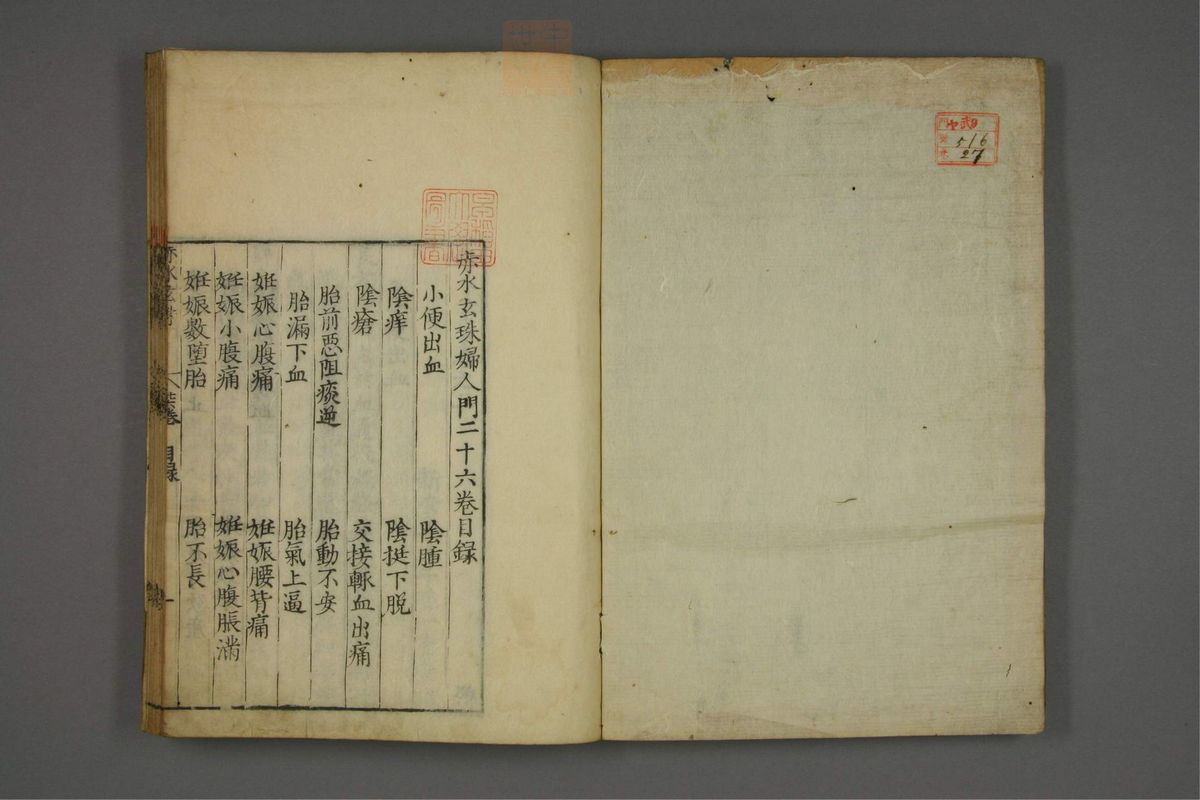 516
27
赤水玄珠婦人門二十六卷目錄
小便出血 陰腫
陰痒 陰挺下脱
陰瘡 交接輙血出痛
胎前惡阻痰逆 胎動不安
胎漏下血 胎氣上逼
姙娠心腹痛 姙娠腰背痛
姙娠小腹痛 姙娠心腹脹滿
姙娠數堕胎 胎不長
赤水玄珠 卷 目録 一